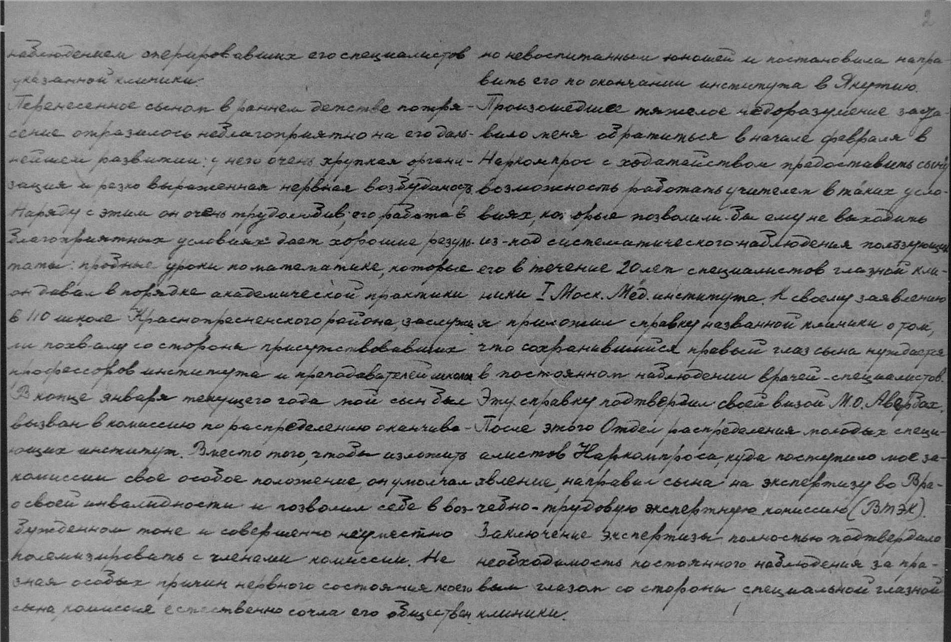 2
наблюдением оперировавших его специалистов
указанной клиники.
Перенесенное сыном в раннем детстве потря-
сение отразилось неблагоприятно на его даль-
нейшем развитии: у него очень хрупкая органи-
зация и резко выраженная нервная возбудимость
Наряду с этим он очень трудолюбив; его работа в
благоприятных условиях дает хорошие резуль-
таты: пробные уроки по математике, которые
он давал в порядке академической практики
в 110 школе Краснопресненского района, заслужи
ли похвалу со стороны присутствовавших
профессоров института и преподавателей школы
В конце января текущего года мой сын был
вызван в комиссию по распределению оканчива-
ющих институт. Вместо того, чтобы изложить
комиссии свое особое положение, он умолчал
о своей инвалидности и позволил себе в воз-
бужденном тоне и совершенно неуместно
полемизировать с членами комиссии. Не
зная особых причин нервного состояния моего
сына комиссия естественно сочла его обществен
но невоспитанным юношей и постановила напра-
вить его по окончании института в Якутию.
Произошедшее тяжелое недоразумение заста-
вило меня обратиться в начале февраля в
Наркомпрос с ходатайством предоставить сыну
возможность работать учителем в таких усло-
виях, которые позволили бы ему не выходить
из-под систематического наблюдения пользующих
его в течение 20 лет специалистов глазной кли-
ники I Моск. Мед. института. К своему заявлению
я приложил справку названной клиники о том,
что сохранившийся правый глаз сына нуждается
в постоянном наблюдении врачей-специалистов.
Эту справку подтвердил своей визой М.О. Авербах
После этого Отдел распределения молодых специ-
алистов Наркомпроса, куда поступило мое за-
явление, направил сына на экспертизу во Вра-
чебно-трудовую экспертную комиссию (ВТЭК).
Заключение экспертизы полностью подтвердило
необходимость постоянного наблюдения за пра-
вым глазом со стороны специальной глазной
клиники.